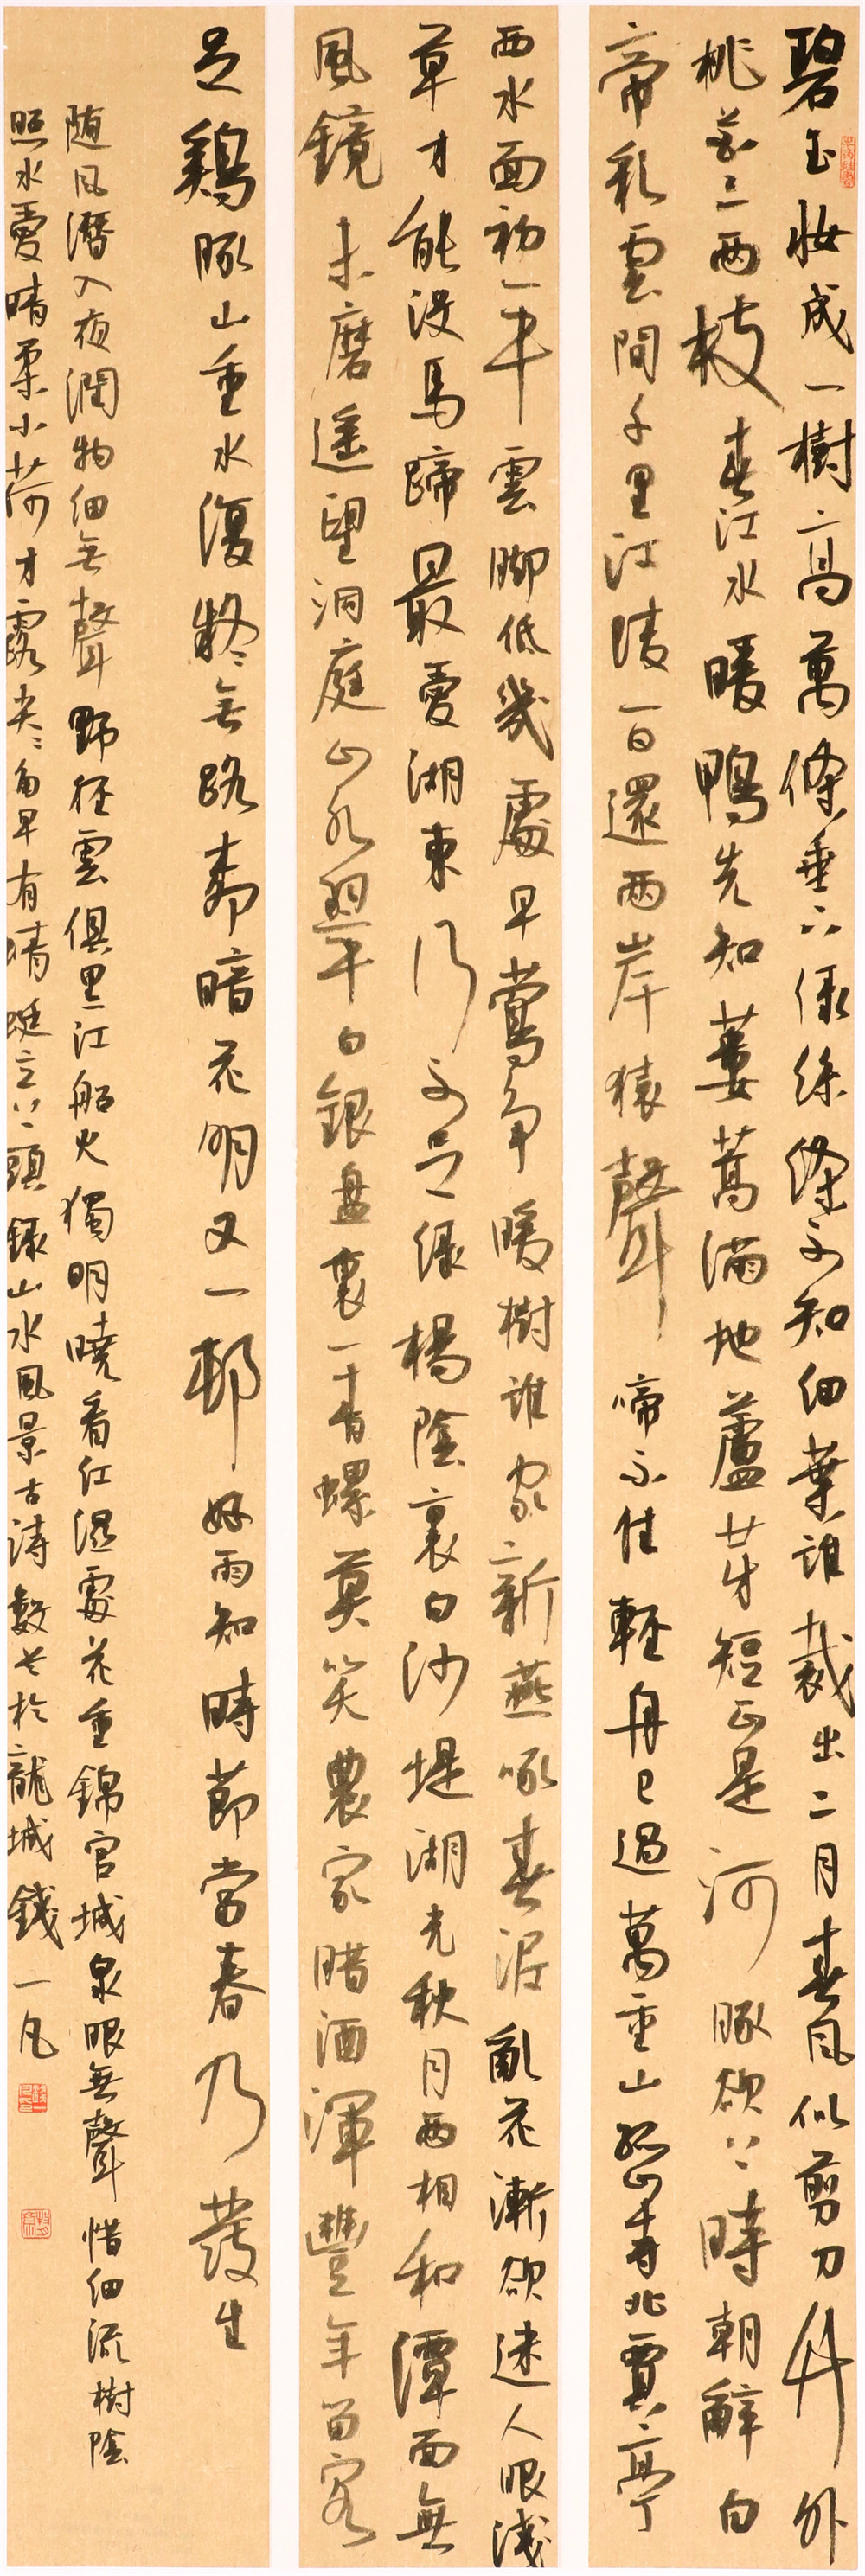 碧玉妝成一樹高萬條垂下綠絲絛不知細葉誰裁出二月春風似剪刀竹外
桃花三兩枝春江水暖鴨先知蔞蒿滿地蘆芽短正是河豚欲上時朝辭白
帝彩雲間千里江陵一日還兩岸猿聲啼不住輕舟已過萬重山孤山寺北賈亭
西水面初平雲腳低幾處早鶯爭暖樹誰家新燕啄春泥亂花漸欲迷人眼淺
草才能沒馬蹄最愛湖東行不足綠楊陰裏白沙堤湖光秋月兩相和潭面無
風鏡未磨遙望洞庭山水翠白銀盤裏一青螺莫笑農家臘酒渾豐年留客
足鷄豚山重水復疑無路柳暗花明又一邨好雨知時節當春乃發生
随風潛入夜潤物細無聲野徑雲俱黑江船火獨明曉看紅濕處花重錦官城泉眼無聲惜細流樹陰
照水愛晴柔小荷才露尖尖角早有蜻蜓立上頭錄山水風景古詩數首於龍城錢一凡